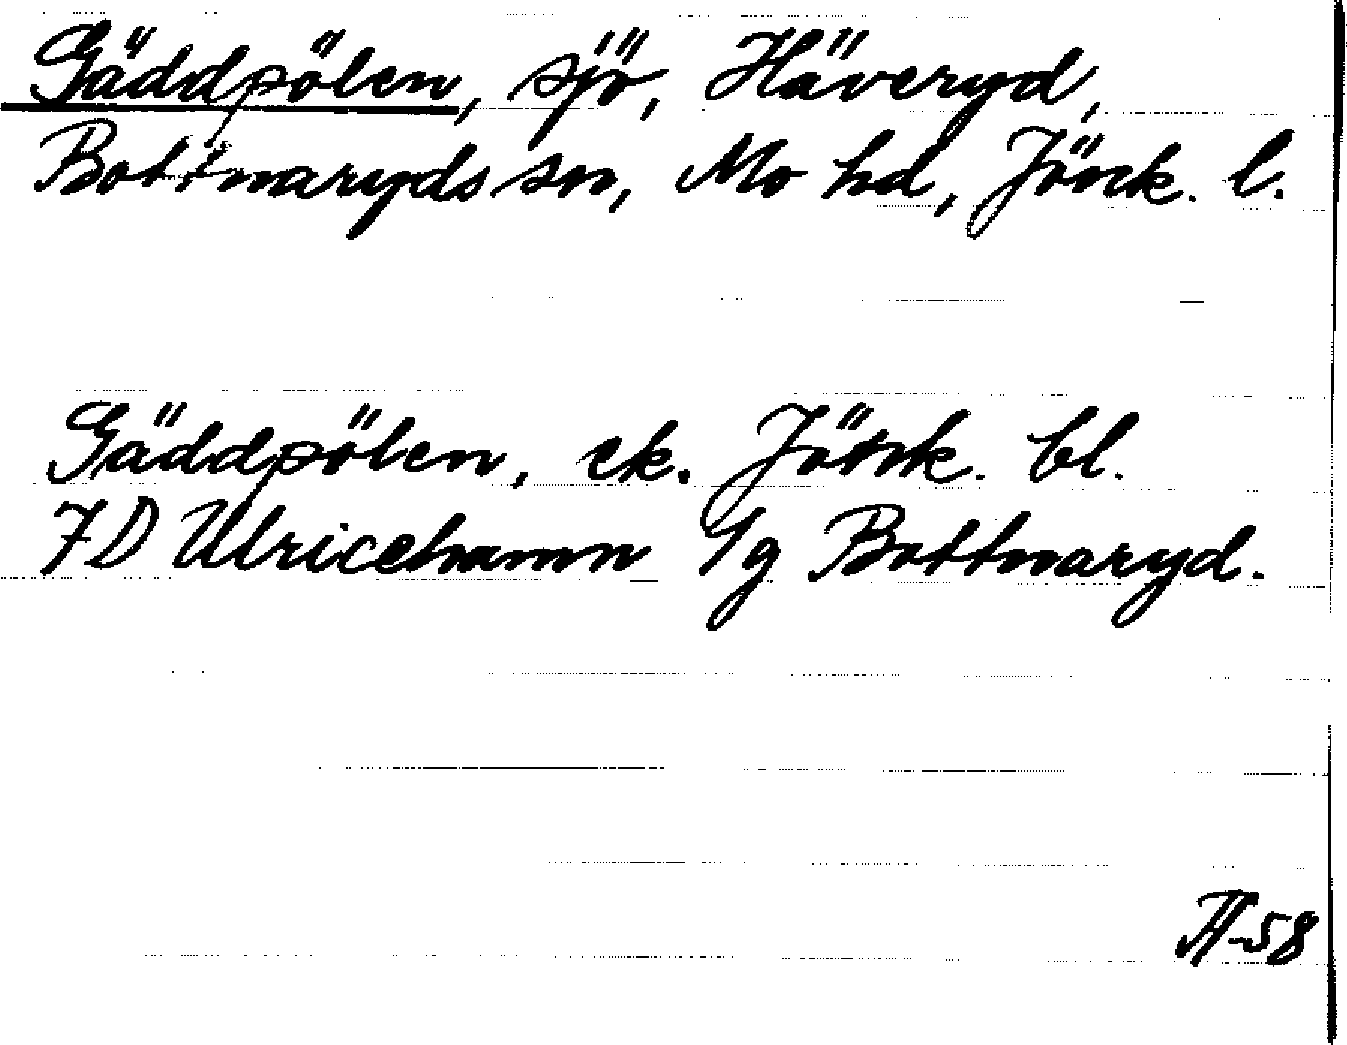 Gäddpölen, sjö, Häveryd,
Bottnaryds sn, Mo hd, Jönk. l.
Gäddpölen, ek. Jönk. bl.
7D Ulricehamn 1g Bottnaryd.
-58